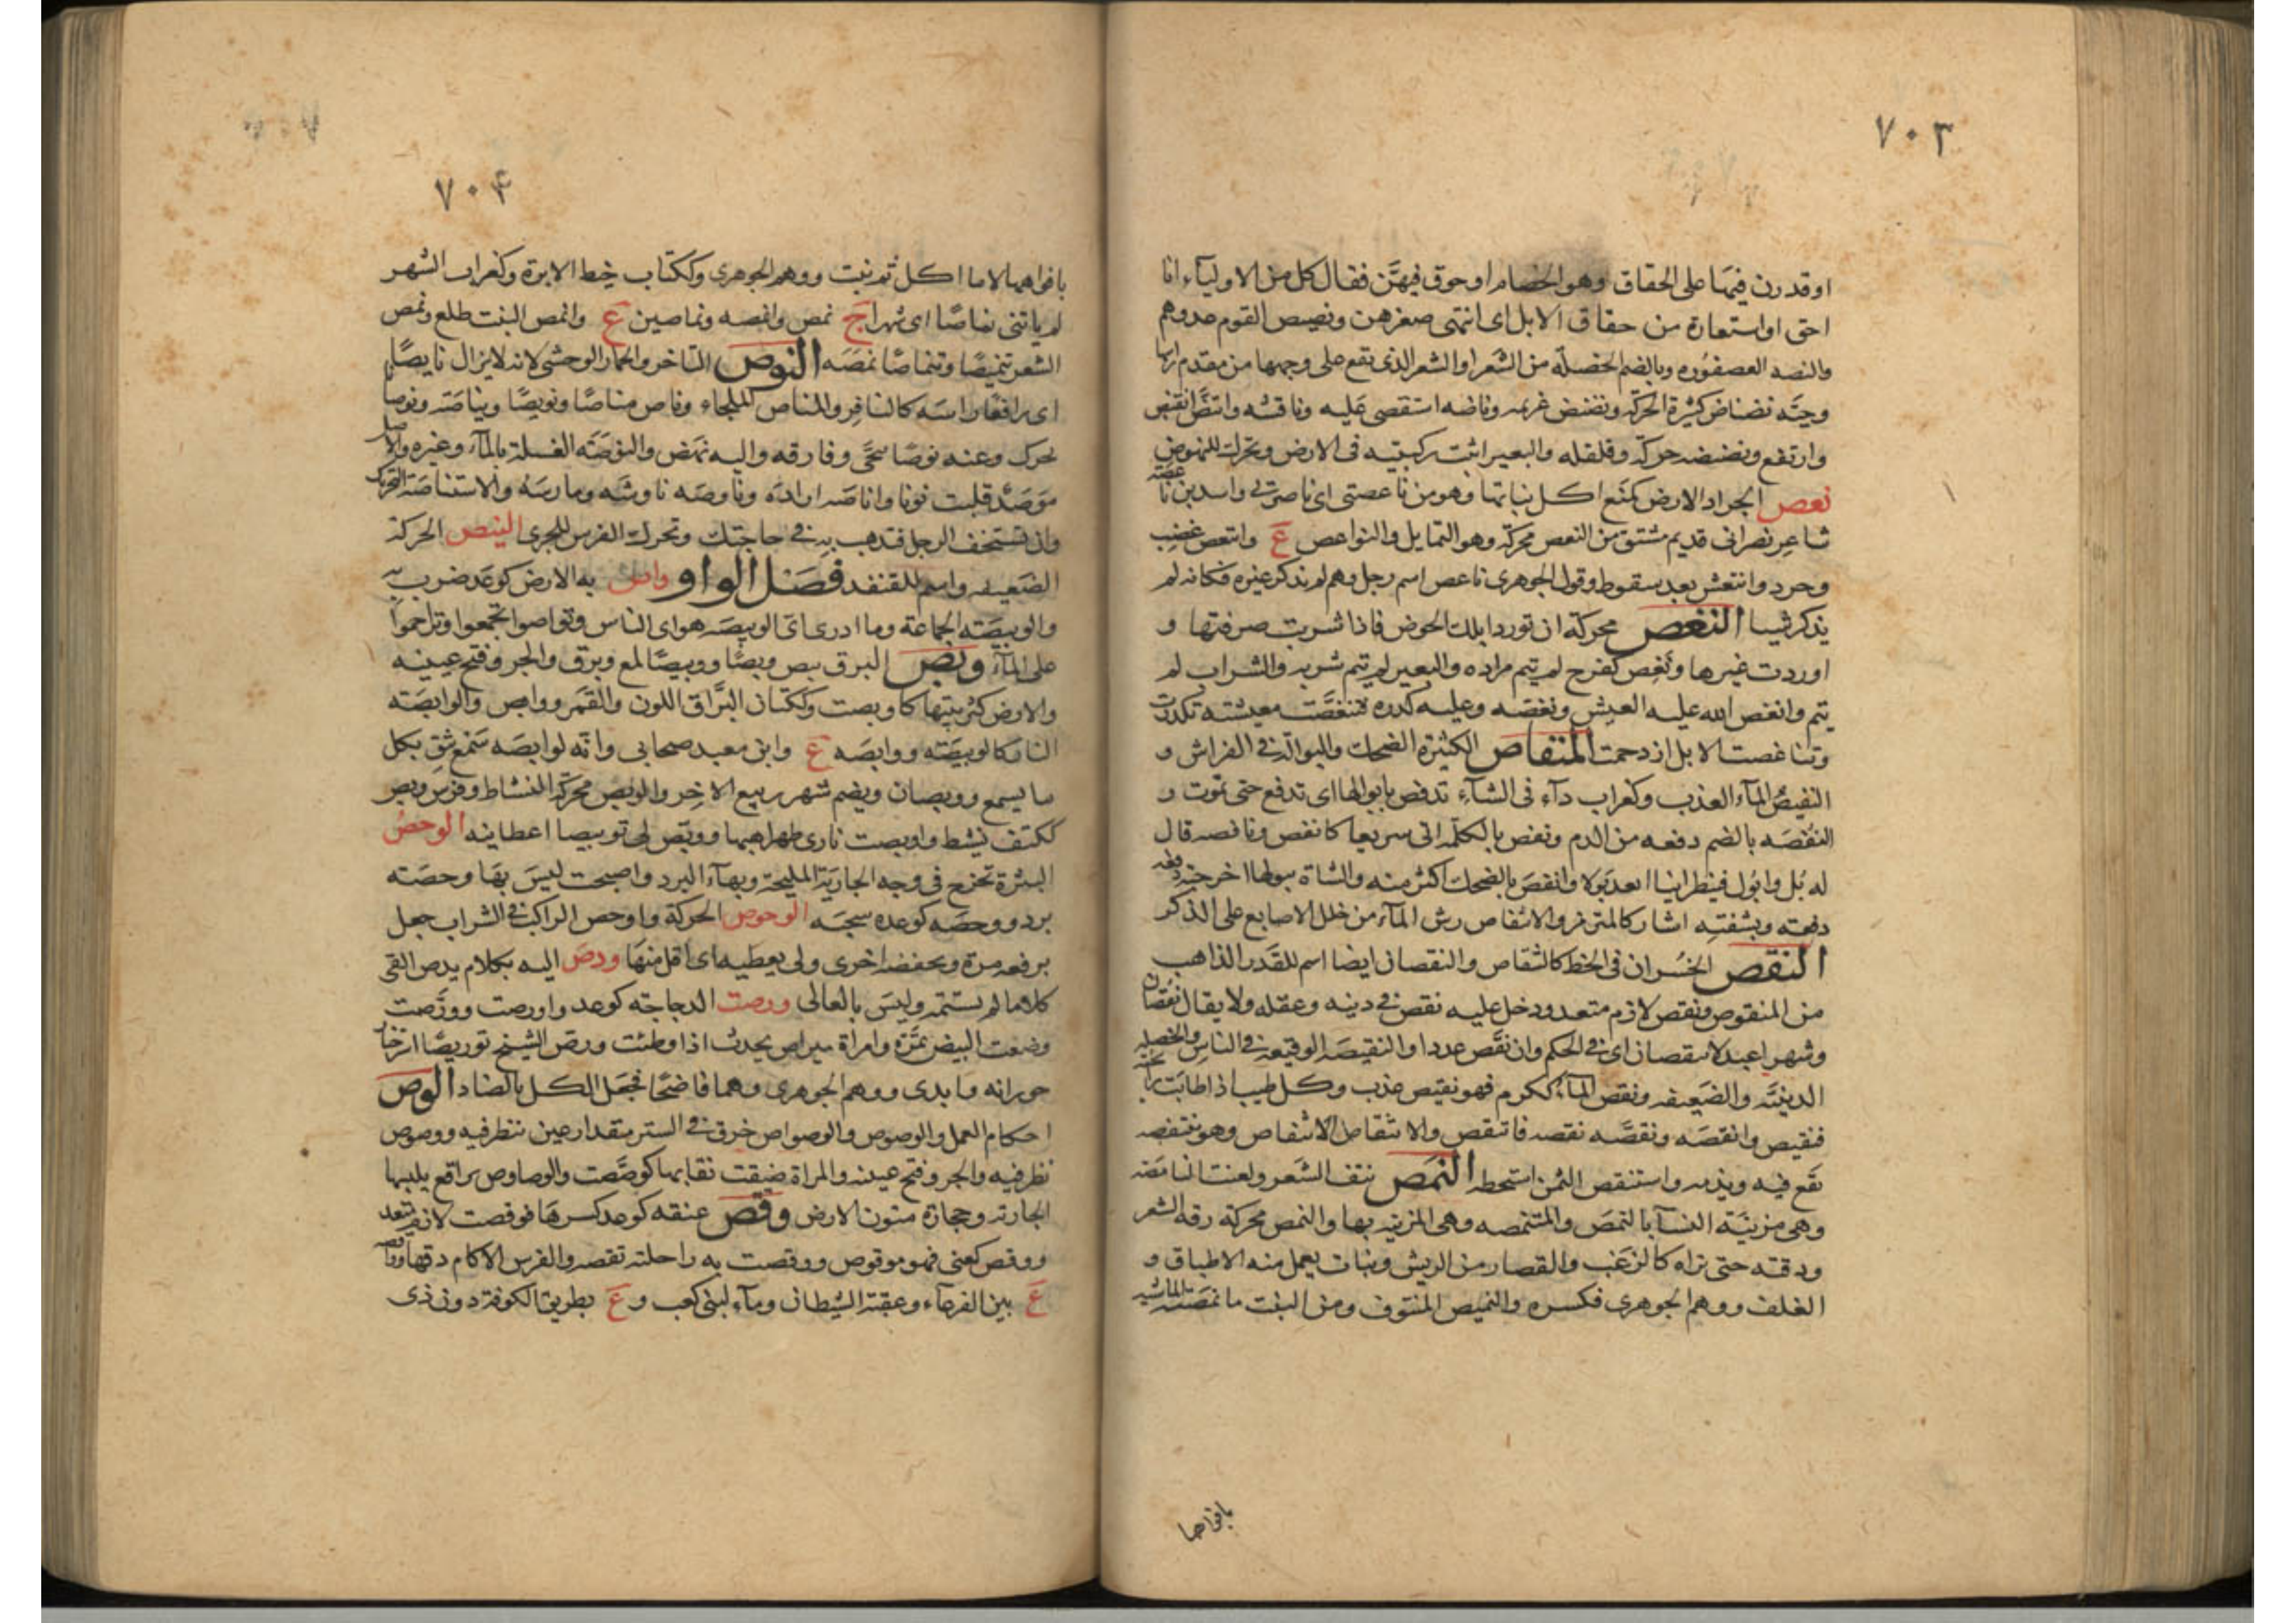 ٧٠٣
او قدرن فيها على الحقاق وهو الخصام او حوق فيهن فقال كل من الاولياء انا
احق او استعارة من حقاق الابل اى انتهى صغرهن ونصيص القوم عددهم
والنصه العصفوره وبالضم الخصلة من الشعر او الشعر الذى تقع على وجهها من مقدم راسها
وحيّه نضناض كثيرة الحركة ونصنص غريمه وناصه استقصى عليه وناقشه وانتصّ انقبض
وارتفع ونصنصه حركه وقلقله والبعير اثبت ركبتيه فى الارض وتحرك للنهوض
نعص الجراد الارض كمنع اكل نباتها وهو من ناعصتى اى ناصرتى واسد بن ناعصة
شاعر نصرانى قديم مشتق من النعص محركة وهو التمايل والنواعص ع وانتعص غضب
وحرد وانتعش بعد سقوط وقول الجوهرى ناعص اسم رجل وهم لم يذكر غيره فكانه لم
يذكر شيا النغص محركة ان تورد ابلك الحوض فاذا شربت صرفتها و
اوردت غيرها ونغص كفرح لم يتم مراده والبعير لم يتم شربه والشراب لم
يتم وانغص الله عليه العيش ونغصه وعليه كدره فتنغصت معيشته تكدرت
وتناغصت الابل ازدحمت المنفاص الكثيرة الضحك والبوالة فى الفراش و
النفيص المآء العذب وكغراب دآء فى الشآء تدفص بابوالها اى تدفع حتى تموت و
النفصه بالضم دفعه من الدم ونفص بالكلمة اتى سريعا كانفص ونافصه قال
له بُل وابول فينظر اينا ابعد بولا وانفص بالضحك اكثر منه والشاة ببولها اخرجته دفعه
دفعه وبشفته اشار كالمترمز والانتفاص رش المآء من خلل الاصابع على الذكر
النقص الخسران فى الحظ كالتنقاص والنقصان ايضا اسم للقدر الذاهب
من المنقوص ونقص لازم متعد ودخل عليه نقص فى دينه وعقله ولا يقال نقصان
وشهرا عيد لا ينقصان اى فى الحكم وان نقص عددا والنقيصه الوقيعه فى الناس والخصله
الدنيئه والضعيفه ونقص المآء ككرم فهو نقيص عذب وكل طيب اذا طابت رائحته
فنقيص وانقصه ونقصه نقصه فانتقص والانتقاص وهو ينتقصه
يقع فيه ويذمه واستنقص الثمن استحطه النمص نتف الشعر ولعنت النامصه
وهى مزينة النسآء بالنمص والمتنمصه وهى المزينه بها والنمص محركة رقه الشعر
ودقته حتى تراه كالزغب والقصار من الريش ونبات يعمل منه الاطباق و
الغلف ووهم الجوهرى فكسره والنميص المنتوف ومن النبت ما نمصته الماشيه
بافواهها
٧٠۴
بافواهها لا ما اكل ثم نبت ووهم الجوهرى وككتاب خيط الابرة وكغراب الشهر
لم ياتنى نماصا اى شهرا ج نمص وانمصه ونماصين ع وانمص النبت طلع ونمص
الشعر تنميصا وتنماصا نمصه النوص التاخر والحمار الوحشى لانه لا يزال نايصا
اى رافعا راسه كالنافر والمناص الملجاء وناص مناصا ونويصا ونياصه ونوصانا
تحرك وعنه نوصا تنحى وفارقه واليه نهض والنوصة الغسلة بالمآء وغيره والاصل
موصة قلبت نونا واناصه اراده وناوصه ناوشه ومارسه والاستناصة التحريك
وان تستخف الرجل فتذهب به فى حاجتك وتحرك الفرس للجرى النيص الحركة
الضعيفه واسم للقنفذ فصل الواو وأص به الارض كوعد ضرب به
والوئيصه الجماعة وما ادرى اى الوئيصه هو اى الناس وتواصوا تجمعوا وتزاحموا
على المآء وبص البرق يبص وبصا ووبيصا لمع وبرق والجرو فتح عينيه
والارض كثر نبتها كاوبصت وككتان البراق اللون والقمر ووابص والوابصه
النار كالوبيصه ووابصه ع وابن معبد صحابى وانه لوابصه سمع يثق بكل
ما يسمع ووبصان ويضم شهر ربيع الاخر والوبص محركة النشاط وفرس وبص
ككتف نشط واوبصت نارى ظهر لهبها ووبص لى توبيصا اعطانيه الوحص
البثرة تخرج فى وجه الجارية المليحة وبهآء البرد واصبحت ليس بها وحصه
برد ووحصه كوعده سحبه الوخوص الحركة واوخص الراكب فى الشراب جعل
يرفعه مرة ويخفضه اخرى ولى بعطيه اى اقل منها ودص اليه بكلام يدص القى
كلاما لم يستتمه وليس بالعالى ورصت الدجاجة كوعد واورصت وورصت
وضعت البيض بمرة وامراة ميراص تحدث اذا وطئت وورص الشيخ توريصا استرخى
حورانه فابدى ووهم الجوهرى وهما فاضحا فجعل الكل بالضاد الوص
احكام العمل والوصوص والوصواص خرق فى الستر بمقدار عين تنظر فيه ووصوص
نظر فيه والجرو فتح عينيه والمراة ضيقت نقابها كوصصت والوصاوص براقع يلبسها
الجاريه وحجارة متون الارض وقص عنقه كوعد كسرها فوقصت لازم متعد
ووقص كعنى فهو موقوص ووقصت به راحلته تقصه والفرس الاكام دقها وواقصه
ع بين القرعاء وعقبة الشيطان ومآء لبنى كعب و ع بطريق الكوفة دون ذى